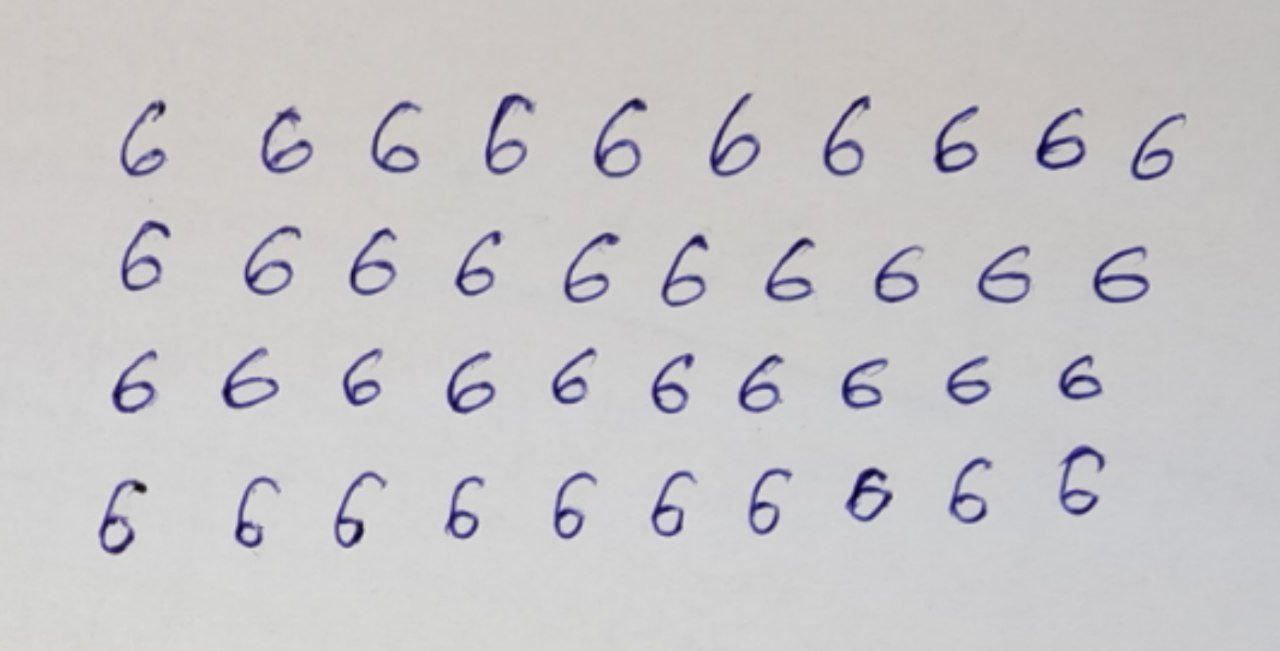 6 6 6 6 6 6 6 6 6 6
6 6 6 6 6 6 6 6 6 6
6 6 6 6 6 6 6 6 6 6
6 6 6 6 6 6 6 6 6 6